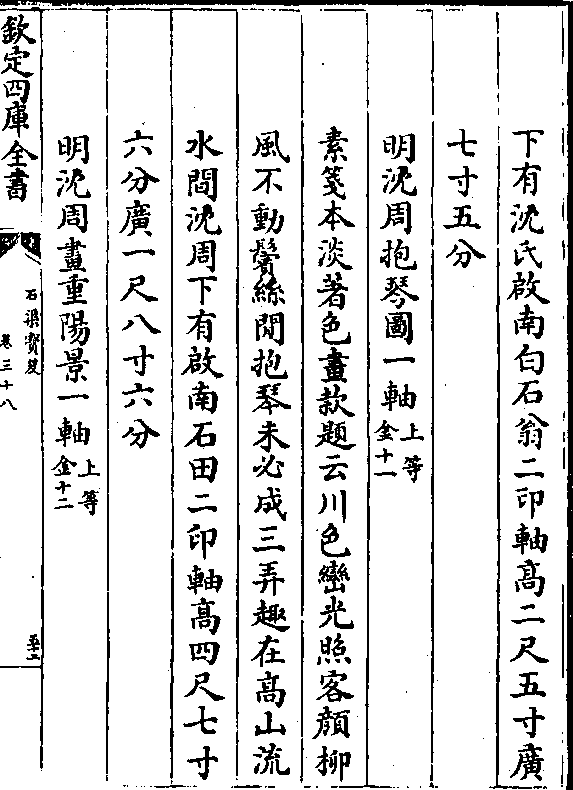 下有沈氏啟南白石翁二印軸高二尺五寸廣
七寸五分
明沈周抱琴圖一軸上等金十一
素箋本淡著色畫款題云川色巒光照客顔柳
風不動鬢絲閒抱琴未必成三弄趣在高山流
水間沈周下有啟南石田二印軸高四尺七寸
六分廣一尺八寸六分
明沈周畫重陽景一軸上等金十二
欽定四庫全書
石渠寶笈
卷三十八
五十二